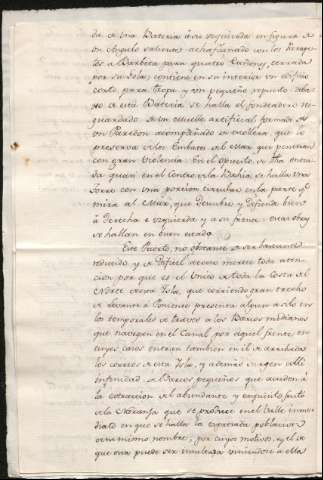 da à una Bateria à su izquierda en figura de
un Angulo saliente achaflanado con los Parape-
tos à Barbeta para quatro Cañones, cerrada
por su Gola; contiene en su interior un edificio
corto para Tropa y un pequeño repuesto. Abaxo
de esta Bateria se halla el fondeadero res-
guardado de un muelle artificial formado de
un Paredon acompañado de escollera, que lo
preserva de los Embates del Mar que penetran
con gran violencia. En el opuesto de dicha ensenada
quasi en el Centro de la Bahia, se halla una
Torre con una porcion circular en la parte qe.
mira al Mar, que descubre y defiende bien
à derecha è izquierda y a su frente: cuias obras
se hallan en buen estado.
Este Puerto, no obstante de ser bastante
reducido, y de dificil acceso merece toda aten-
cion por que es el Unico de toda la Costa del
Norte de esta Isla, que corriendo gran trecho
de Levante à Poniente presenta algun asilo en
los temporales de travesia à los Barcos medianos
que naveguen en el Canal por aquel frente, en
cuyos casos entran tambien en él de arribada
los correos de esta Isla, y además surgen alli
infinidad de Barcos pequeños que acuden à
la extraccion del abundante y exquisito fruto
de la Naranja que se produce en el Valle inme-
diato en que se halla la expresada poblacion
de su mismo nombre, por cuyos motivos, y el de
que ésta puede ser insultada viniendo à ella